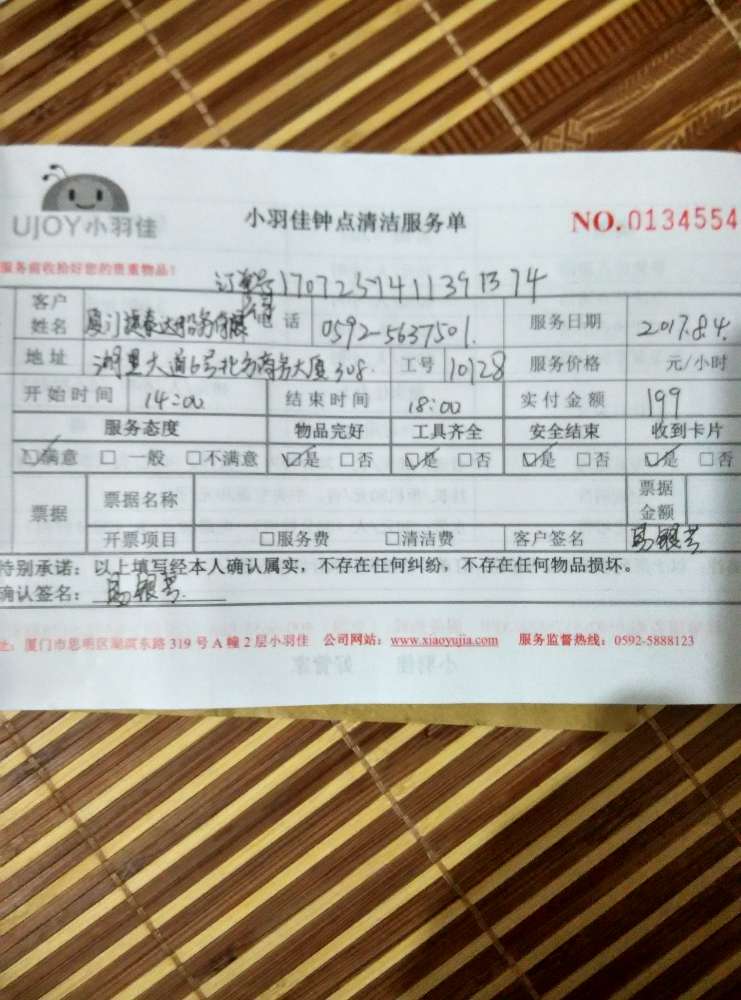 UJOY小羽佳
小羽佳钟点清洁服务单
NO.0134554
服务前收拾好您的贵重物品!
订单号
客户姓名 电话 0592-5637501. 服务日期 2017.8.4.
地址 湖里大道6号北方商务大厦308. 工号 10128 服务价格 元/小时
开始时间 14:00 结束时间 18:00 实付金额 199
服务态度 物品完好 工具齐全 安全结束 收到卡片
☑满意 □一般 □不满意 ☑是 □否 ☑是 □否 ☑是 □否 ☑是 □否
票据 票据名称 票据金额
开票项目 □服务费 □清洁费 客户签名
特别承诺：以上填写经本人确认属实，不存在任何纠纷，不存在任何物品损坏。
确认签名：
址：厦门市思明区湖滨东路319号A幢2层小羽佳 公司网站：www.xiaoyujia.com 服务监督热线：0592-5888123